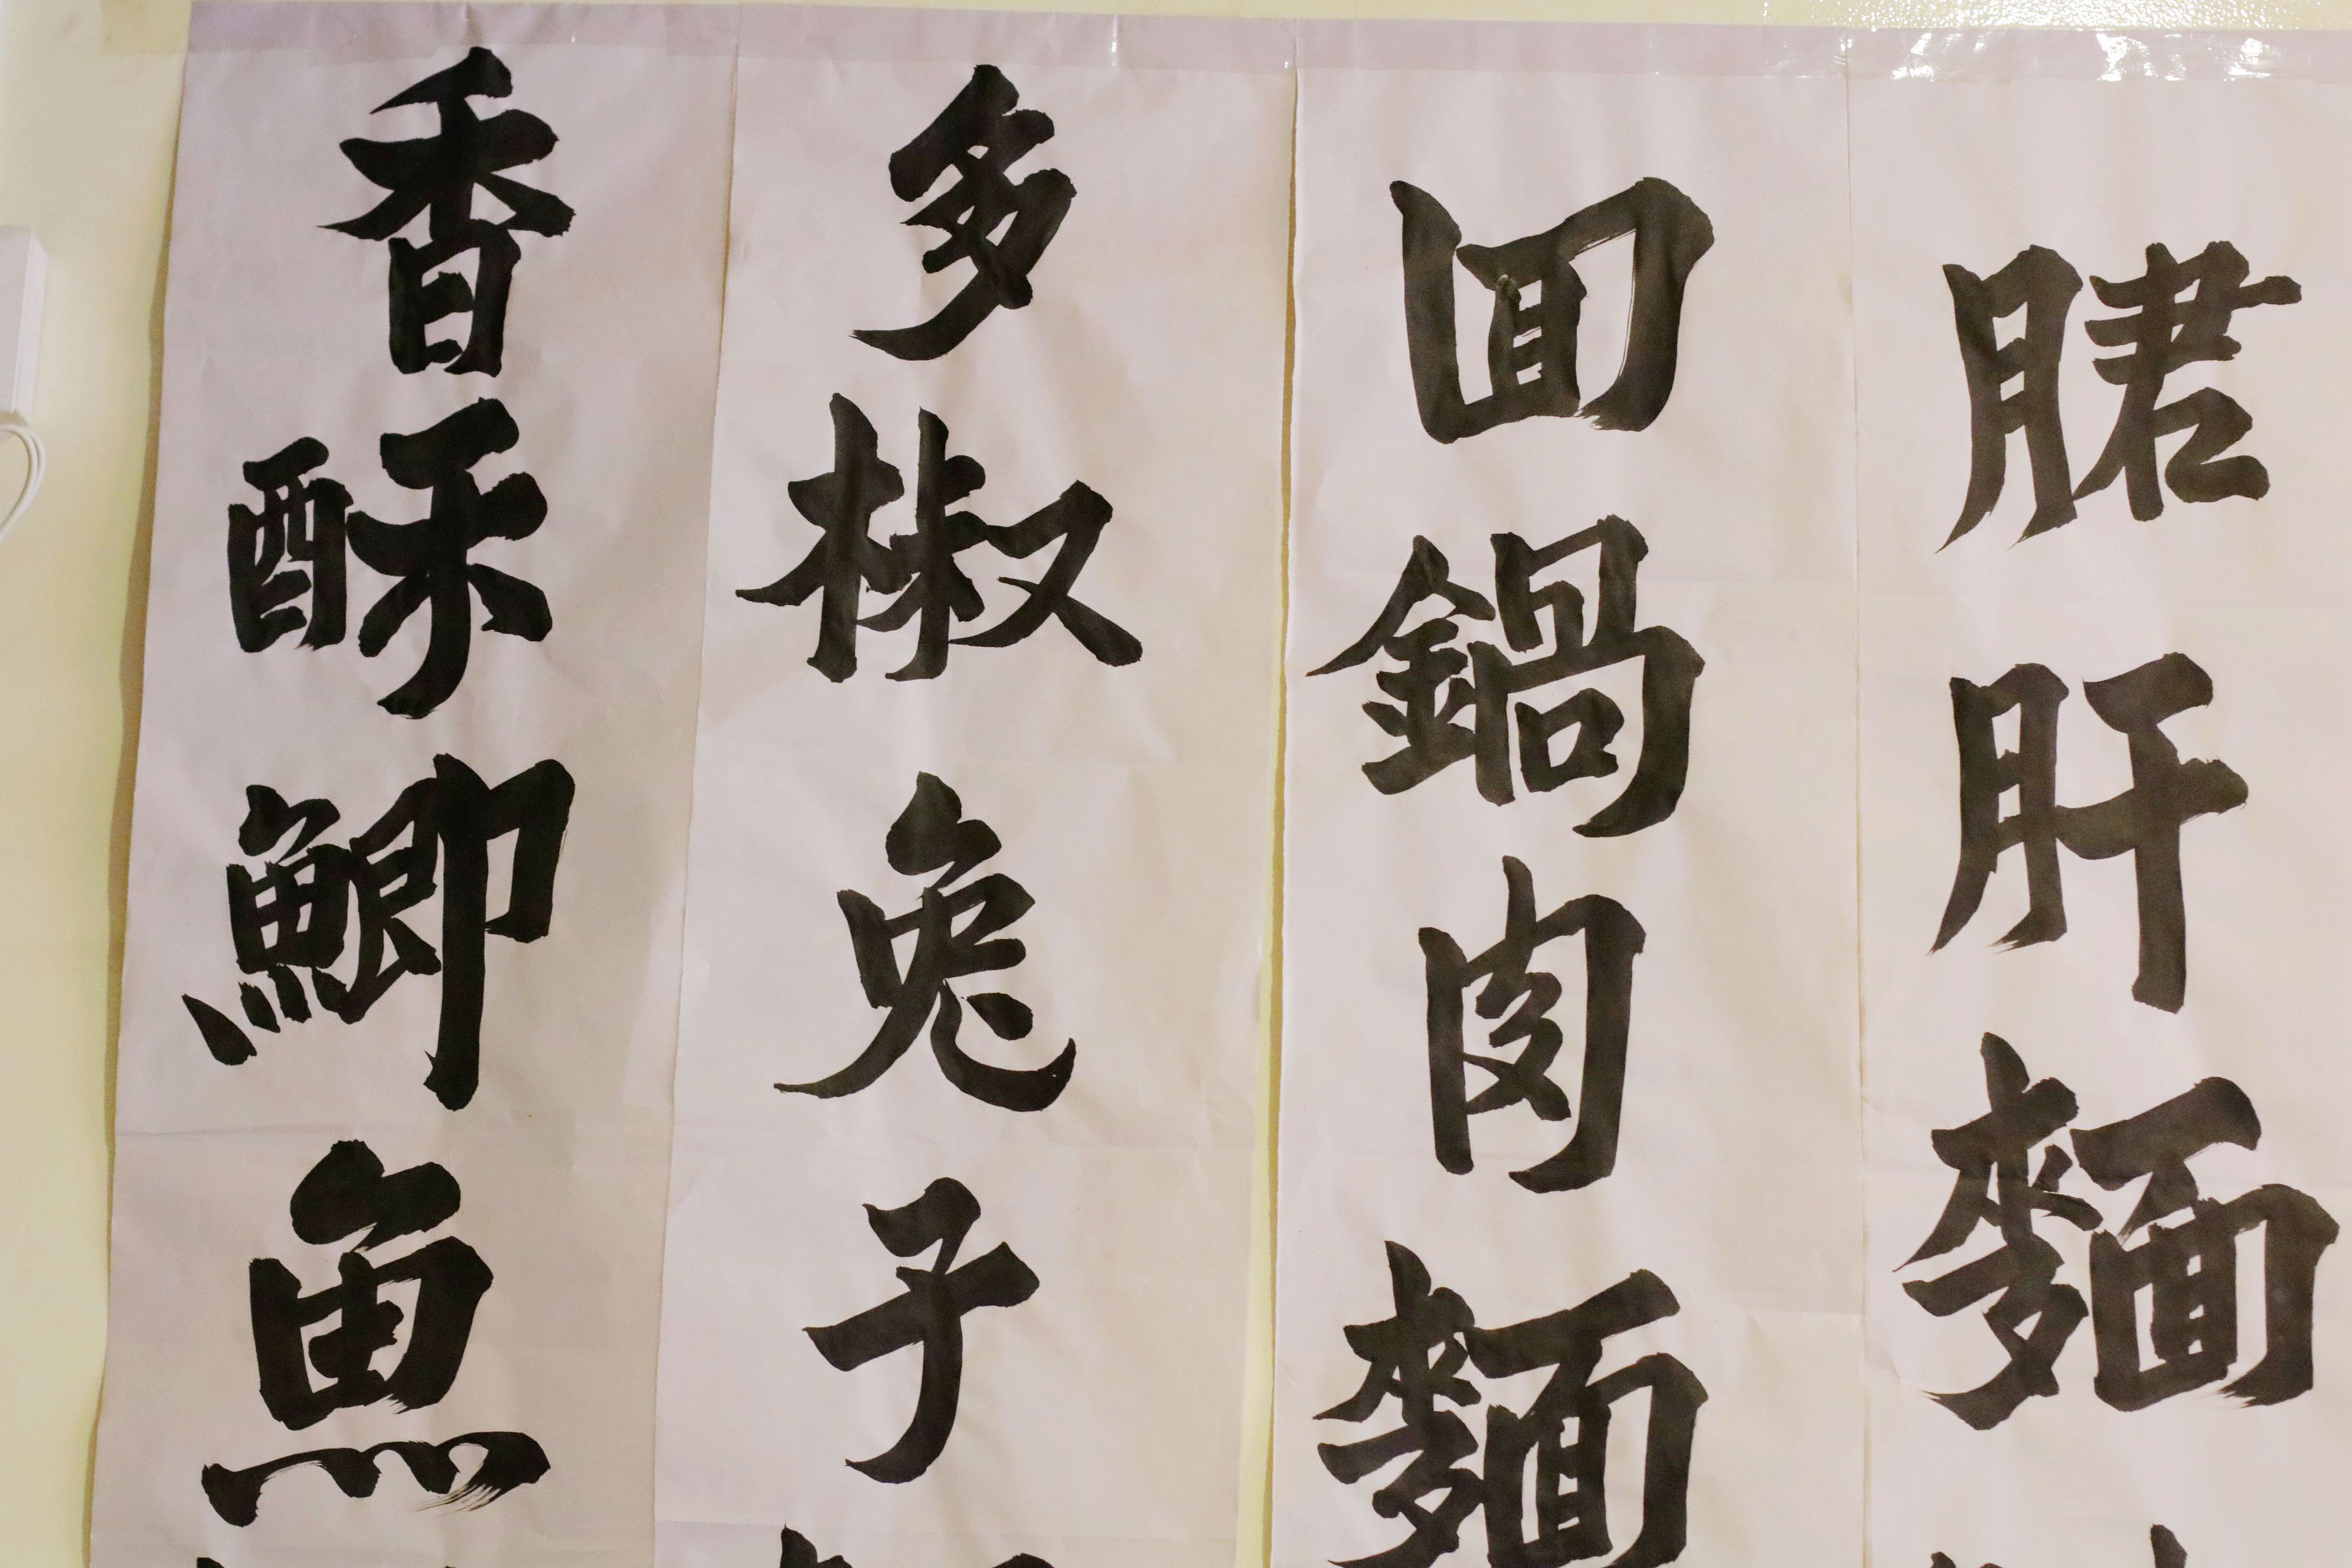 肝麵
回鍋肉麵
多椒兔子
香酥鯽魚